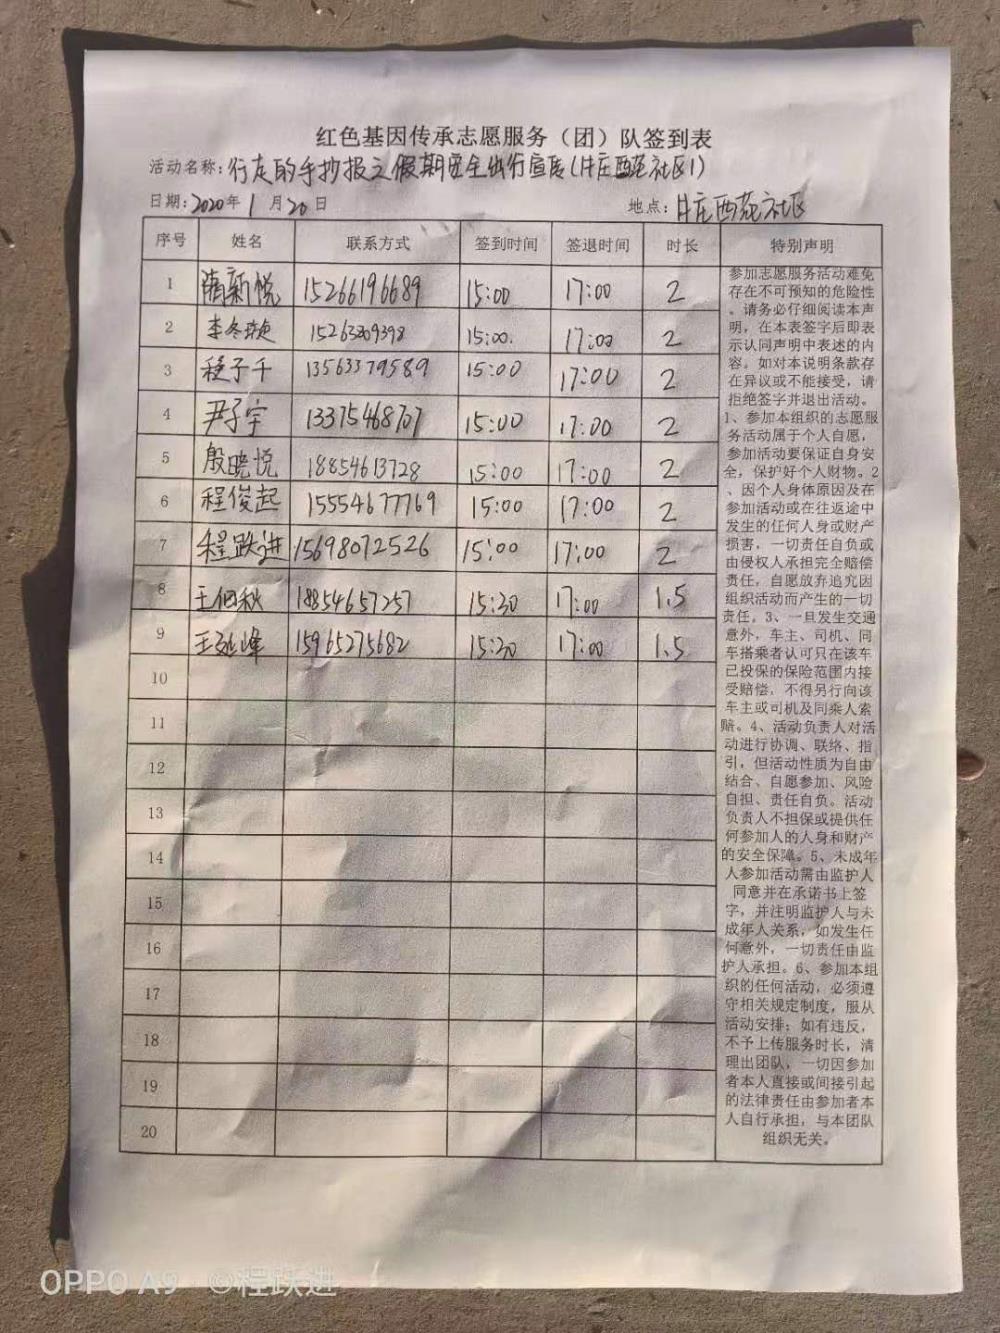 红色基因传承志愿服务（团）队签到表
活动名称：行走的手抄报之假期安全出行宣传（牛庄西苑社区1）
日期：2020年1月20日 地点：牛庄西苑社区
序号 姓名 联系方式 签到时间 签退时间 时长 特别声明
1 新悦 15266196689 15:00 17:00 2
2 李冬 15263809398 15:00. 17:00 2
3 子千 13563379589 15:00 17:00 2
4 尹子宇 13375468707 15:00 17:00 2
5 殷晓悦 18854613728 15:00 17:00 2
6 程俊起 15554677769 15:00 17:00 2
7 程跃进 15698072526 15:00 17:00 2
8 王佃秋 18854657257 15:30 17:00 1.5
9 王延峰 15965275682 15:30 17:00 1.5
10
11
12
13
14
15
16
17
18
19
20
参加志愿服务活动难免
存在不可预知的危险性
。请务必仔细阅读本声
明，在本表签字后即表
示认同声明中表述的内
容。如对本说明条款存
在异议或不能接受，请
拒绝签字并退出活动。
1、参加本组织的志愿服
务活动属于个人自愿，
参加活动要保证自身安
全，保护好个人财物。2
、因个人身体原因及在
参加活动或在往返途中
发生的任何人身或财产
损害，一切责任自负或
由侵权人承担完全赔偿
责任，自愿放弃追究因
组织活动而产生的一切
责任。3、一旦发生交通
意外，车主、司机、同
车搭乘者认可只在该车
已投保的保险范围内接
受赔偿，不得另行向该
车主或司机及同乘人索
赔。4、活动负责人对活
动进行协调、联络、指
引，但活动性质为自由
结合、自愿参加、风险
自担、责任自负。活动
负责人不担保或提供任
何参加人的人身和财产
的安全保障。5、未成年
人参加活动需由监护人
同意并在承诺书上签
字，并注明监护人与未
成年人关系，如发生任
何意外，一切责任由监
护人承担。6、参加本组
织的任何活动，必须遵
守相关规定制度，服从
活动安排；如有违反，
不予上传服务时长，清
理出团队，一切因参加
者本人直接或间接引起
的法律责任由参加者本
人自行承担，与本团队
组织无关。
OPPO A9 ©程跃进